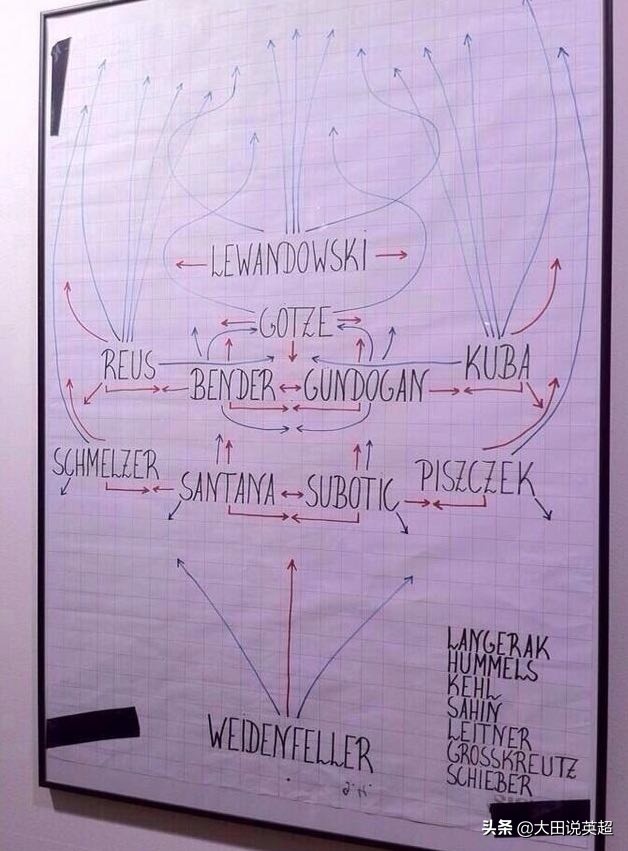 LEWANDOWSKI
GÖTZE
REUS
KUBA
BENDER GÜNDOGAN
SCHMELZER
SANTANA SUBOTIC PISZCZEK
WEIDENFELLER
LANGERAK
HUMMELS
KEHL
SAHIN
LEITNER
GROSSKREUTZ
SCHIEBER
头条 @大田说英超